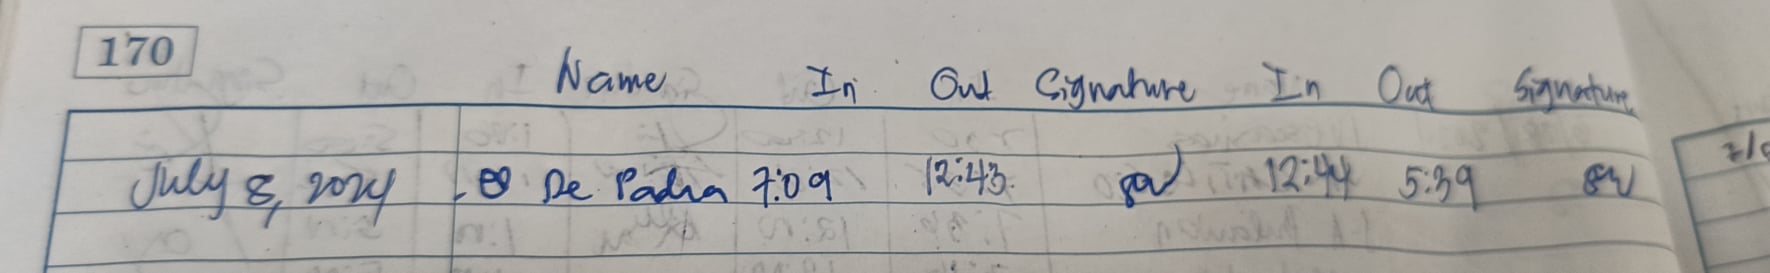 170
Name In Out Signature In Out Signature
July 8, 2024 De Padua 7:09 12:43 12:44 5:39